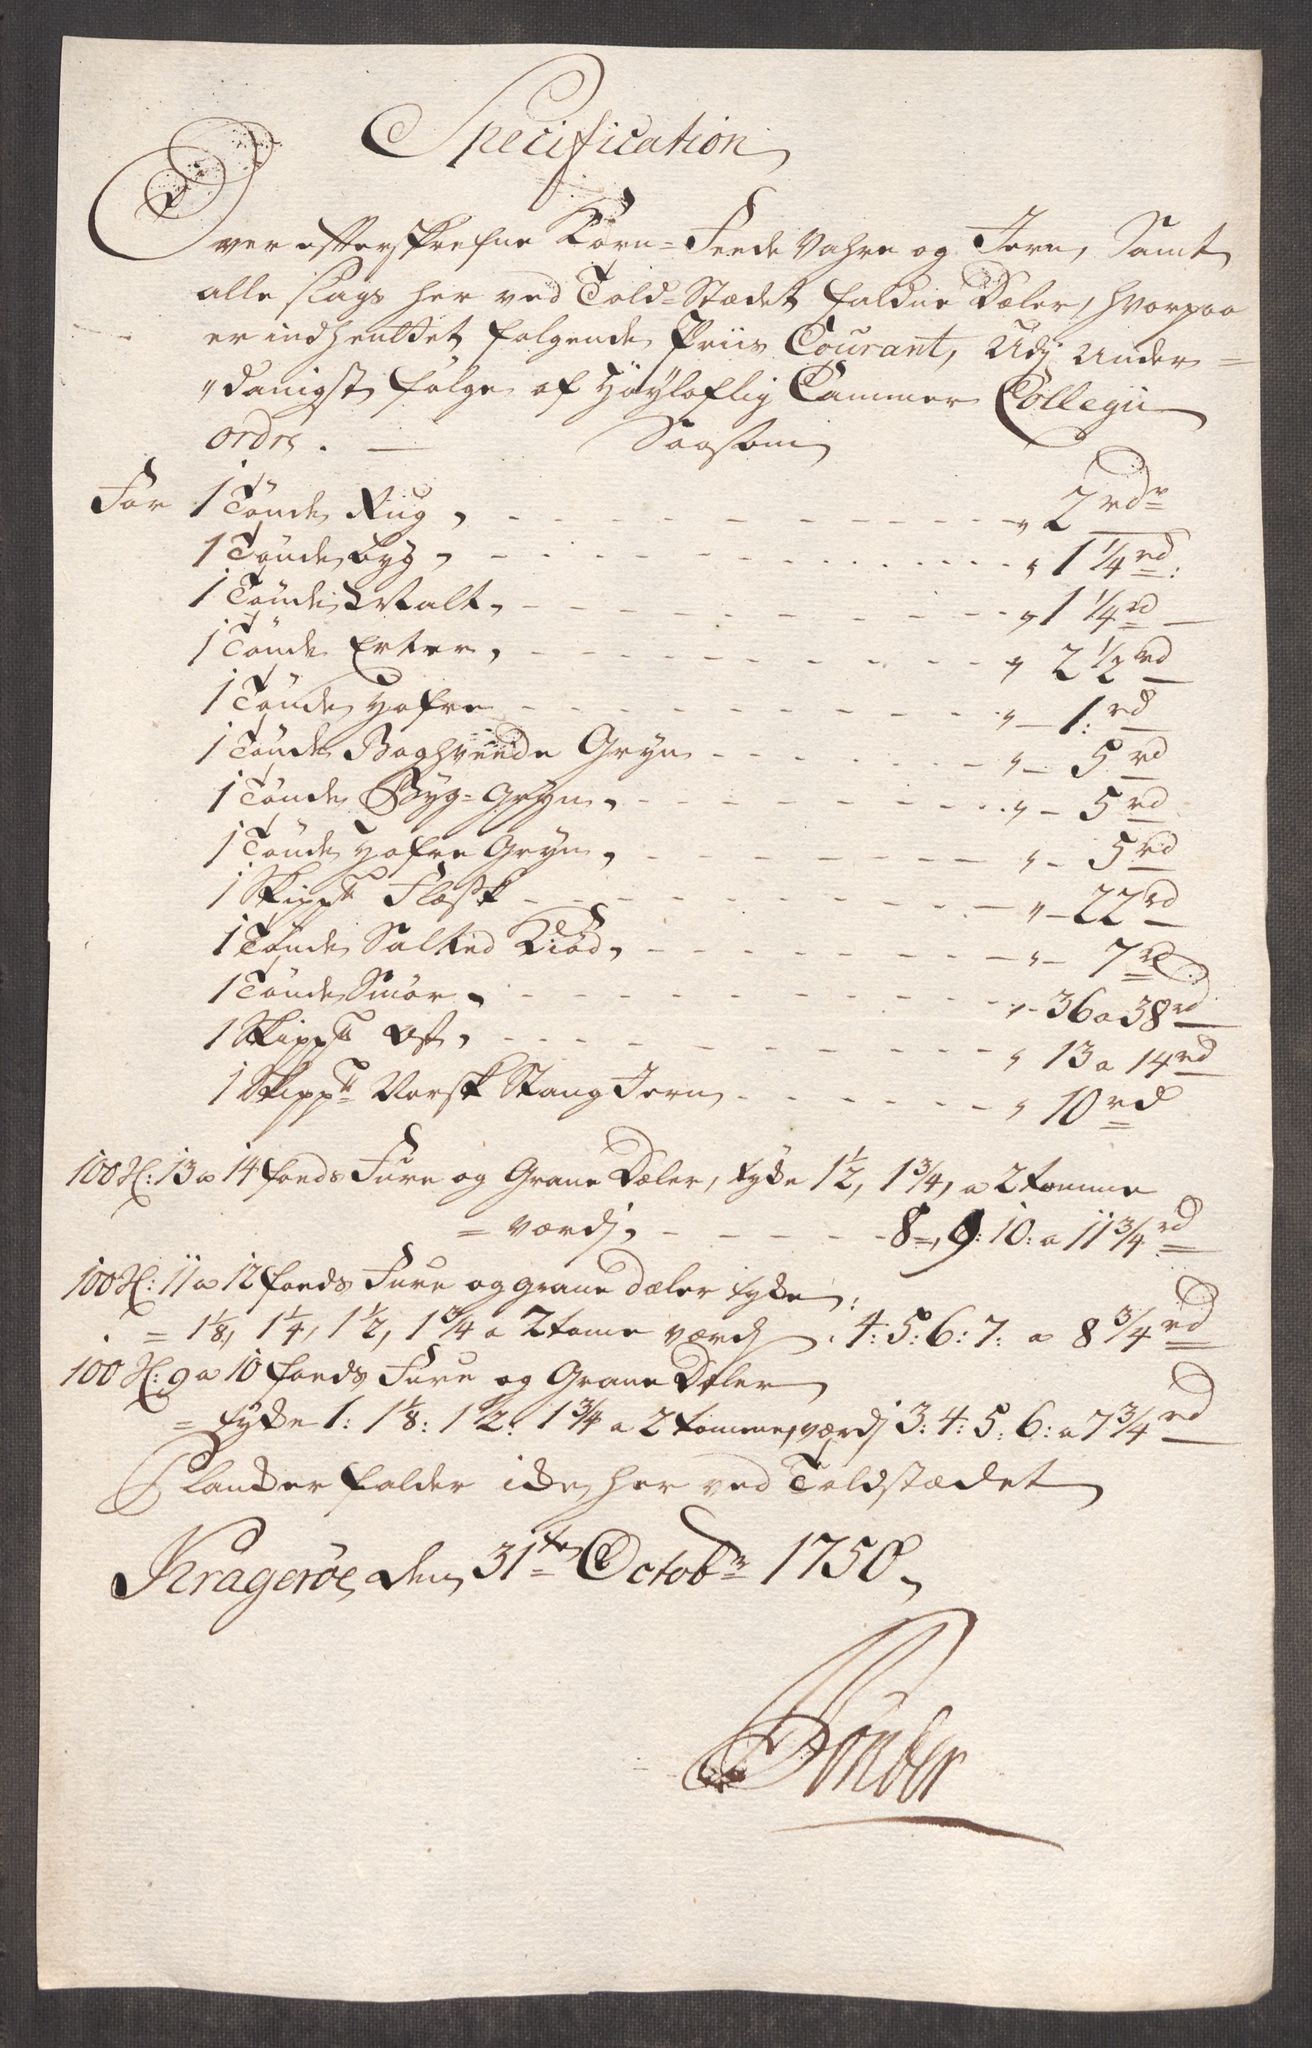 Specification
Over efterskrefne Korn- Feede Vahre og Jern, Samt
alle slags her ved Told-Stædet faldne Dæler, hvorpaa
er indhentet følgende Priis Courant, Udj Under=
"danigst følge af Høyloflig Cammer Collegii
ordre. — Saasom
For 1 Tønde Rug, - - - " 2 rdr
1 Tønde byg, - - - " 1 1/4 rd:
1 Tønde Malt, - - - " 1 1/4 rd
1 Tønde Erter, - - - " 2 1/2 rd
1 Tønde Hafre - - - " 1: rd
1 Tønde Boghveede Gryn - - - " 5 rd
1 Tønde Byg=Gryn, - - - " 5 rd
1 Tønde Hafre Gryn, - - - " 5 rd
1 Skippd Flæsk - - - " 22 rd
1 Tønde Salted Kiød, - - - " 7 rd
1 Tønde Smør, - - - " 36 a 38 rd
1 Skippd Ost, - - - " 13 a 14 rd
1 Skippd Norsk Stang Jern - - - " 10 rd
100 St: 13 a 14 foeds Fure og Grane Dæler, tykke 1 1/2, 1 3/4, a 2 tomme
= værdj, - - - 8, 9: 10: a 11 3/4 rd
100 St: 11 a 12 foeds Fure og grane dæler tykke
= 1 1/8, 1 1/4, 1 1/2, 1 3/4 a 2 tome værdj : 4: 5: 6: 7: a 8 3/4 rd
100 St: 9 a 10 foeds Fure og Grane Dæler
= tykke 1: 1 1/8: 1 1/2: 1 3/4 a 2 tomme, værdj 3: 4: 5: 6: a 7 3/4 rd
Planker falder icke her ved Toldstædet
Kragerøe den 31te Octobr 1750,